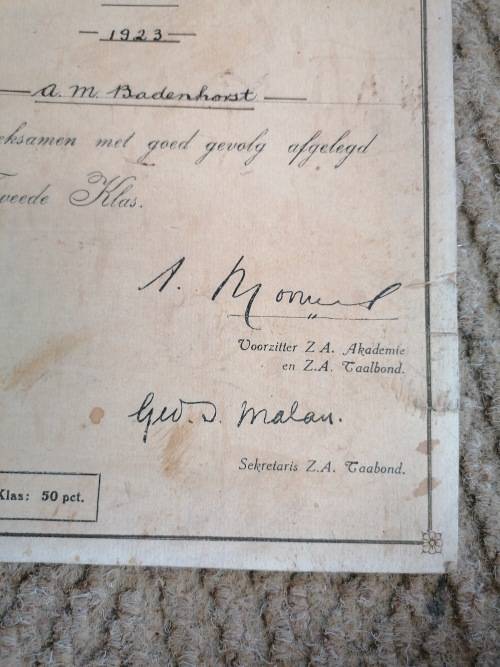 1923
A. M. Badenhorst
eksamen met goed gevolg afgelegd
weede Klas.
A. Moorrees
Voorzitter Z A. Akademie
en Z.A. Taalbond.
Ged. S. Malan.
Sekretaris Z.A. Taabond.
Klas: 50 pct.